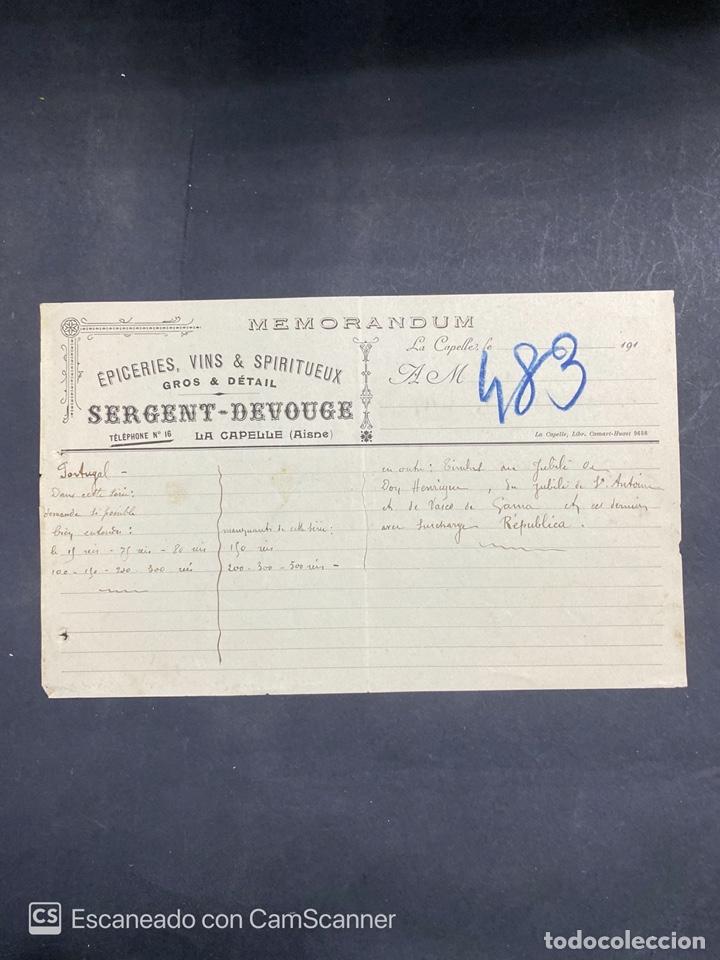 MEMORANDUM
ÉPICERIES, VINS & SPIRITUEUX
GROS & DÉTAIL
SERGENT-DEVOUGE
TÉLÉPHONE Nº 16
LA CAPELLE (Aisne)
La Capelle, le 191
A M
483
La Capelle, Libr. Camart-Huset 9658
Portugal -
Dans cette série:
demande si possible
bien entendu:
le 15 reis - 75 reis - 80 reis
100 - 150 - 200 - 300 reis
manquants de cette série:
150 reis
200 - 300 - 500 reis -
en outre: Timbres du Jubilé de
Don Henrique, du jubilé de St Antoine
et de Vasco de Gama et ces derniers
avec surcharge República.
CS Escaneado con CamScanner
todocoleccion